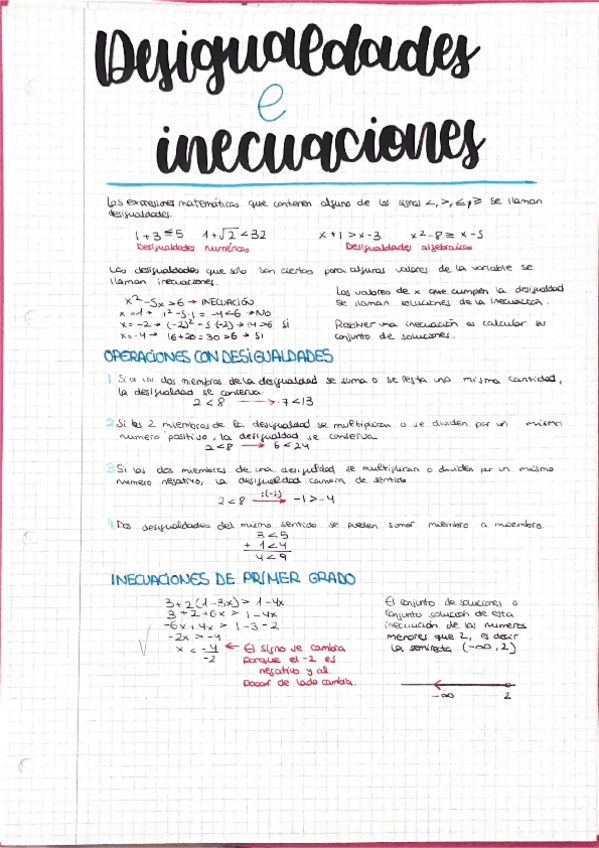 Desigualdades
e
inecuaciones
Las expresiones matemáticas que contienen alguno de los signos <, >, ≤ y ≥ se llaman
desigualdades.
1+3≤5 1+√2<32 x+1>x-3 x²-8≥x-5
Desigualdades numéricas Desigualdades algebraicas
Las desigualdades que sólo son ciertas para algunos valores de la variable se
llaman inecuaciones.
x²-5x>6 → INECUACIÓN
x=1 → 1²-5·1=-4<6 → NO
x=-2 → (-2)²-5(-2) → 14>6 Sí
x=-4 → 16+20=30>6 → Sí
Los valores de x que cumplen la desigualdad
se llaman soluciones de la inecuación.
Resolver una inecuación es calcular su
conjunto de soluciones.
OPERACIONES CON DESIGUALDADES
1 Si a los dos miembros de la desigualdad se suma o se resta una misma cantidad,
la desigualdad se conserva.
2<8 → 7<13
2 Si los 2 miembros de la desigualdad se multiplican o se dividen por un mismo
numero positivo, la desigualdad se conserva
2<8 → 6<24
3 Si los dos miembros de una desigualdad se multiplican o dividen por un mismo
numero negativo, la desigualdad cambia de sentido
2<8 :(-2) → -1>-4
4 Dos desigualdades del mismo sentido se pueden sumar miembro a miembro.
3<5
+ 1<4
4<9
INECUACIONES DE PRIMER GRADO
3+2(1-3x)>1-4x
3+2+6x>1-4x
-6x+4x>1-3-2
-2x>-4
x<-4/-2 ← El signo se cambia
porque el -2 es
negativo y al
pasar de lado cambia.
El conjunto de soluciones o
conjunto solución de esta
inecuación de los numeros
menores que 2, es decir
la semirrecta (-∞,2)
-∞ 2